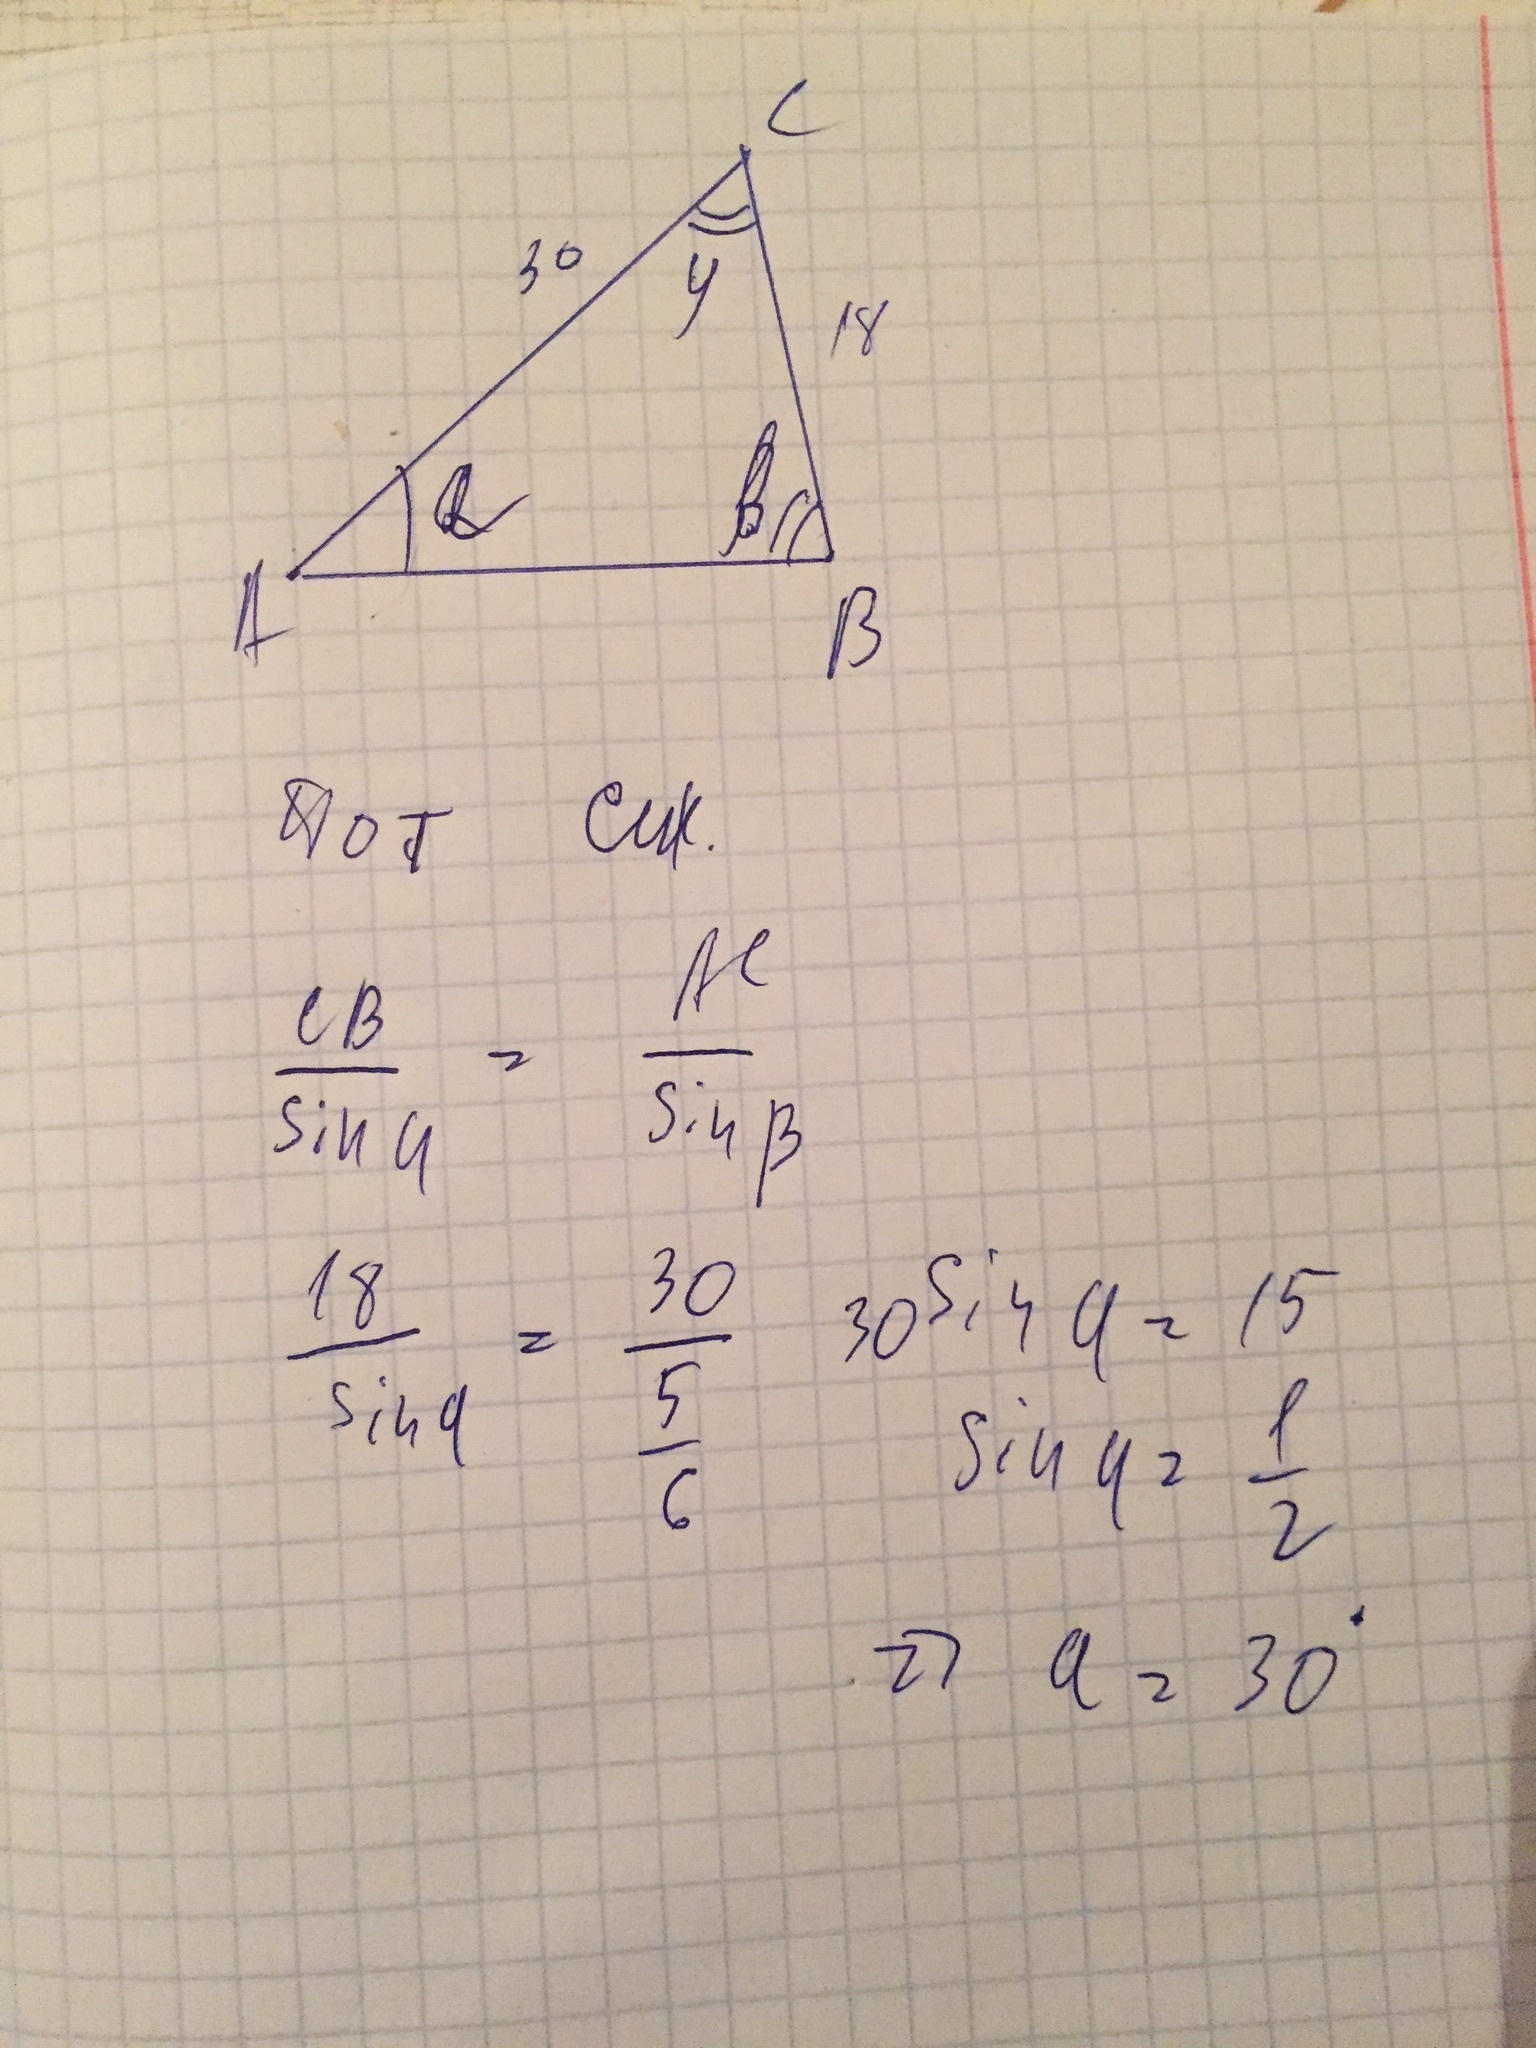 C
30
γ
18
α
β
A
B
По т син.
CB/sin α = AC/sin β
18/sin α = 30/(5/6)
30 sin α = 15
sin α = 1/2
=> α = 30°